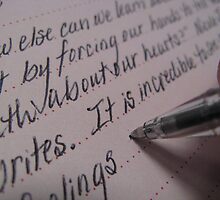 w else can we learn about
t by forcing our hands to
th about our hearts?"
orites. It is incredible to
eelings